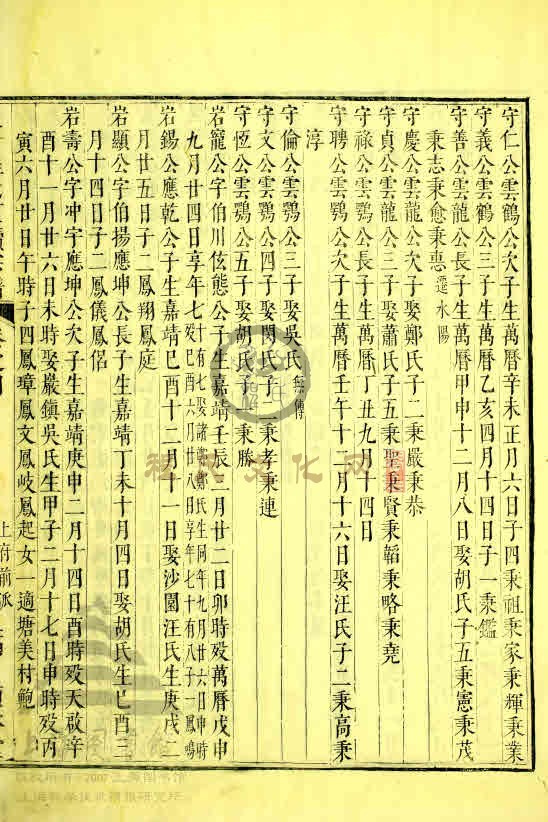 守仁公雲鶴公次子生萬曆辛未正月六日子四秉祖秉家秉輝秉業
守義公雲鶴公三子生萬曆乙亥四月十四日子一秉鑑
守善公雲龍公長子生萬曆甲申十二月八日娶胡氏子五秉憲秉茂
秉志秉愈秉惠遷水陽
守慶公雲龍公次子娶鄭氏子二秉嚴秉恭
守貞公雲龍公三子娶蕭氏子五秉聖秉賢秉韜秉略秉堯
守祿公雲鶚公長子生萬曆丁丑九月十四日
守聘公雲鶚公次子生萬曆壬午十二月十六日娶汪氏子二秉高秉
淳
守倫公雲鶚公三子娶吳氏無傳
守文公雲鶚公四子娶閔氏子二秉孝秉連
守恆公雲鶚公五子娶胡氏子一秉勝
岩寵公字伯川伭態公子生嘉靖壬辰二月廿二日卯時歿萬曆戊申
九月廿四日享年七十有七娶諸潭鄭氏生同年九月廿六日申時歿己酉六月廿八日享年七十有八子一鳳鳴
岩錫公應乾公子生嘉靖己酉十二月十一日娶沙園汪氏生庚戌二
月廿五日子二鳳翔鳳庭
岩顯公字伯揚應坤公長子生嘉靖丁未十月四日娶胡氏生乙酉三
月十四日子二鳳儀鳳侶
岩壽公字冲宇應坤公次子生嘉靖庚申二月十四日酉時歿天啟辛
酉十一月廿六日未時娶嚴鎮吳氏生甲子二月十七日申時歿丙
寅六月廿日午時子四鳳璋鳳文鳳岐鳳起女一適塘美村鮑
上府前派
程氏文化网
版权所有©2007上海图书馆
上海科学技术情报研究所